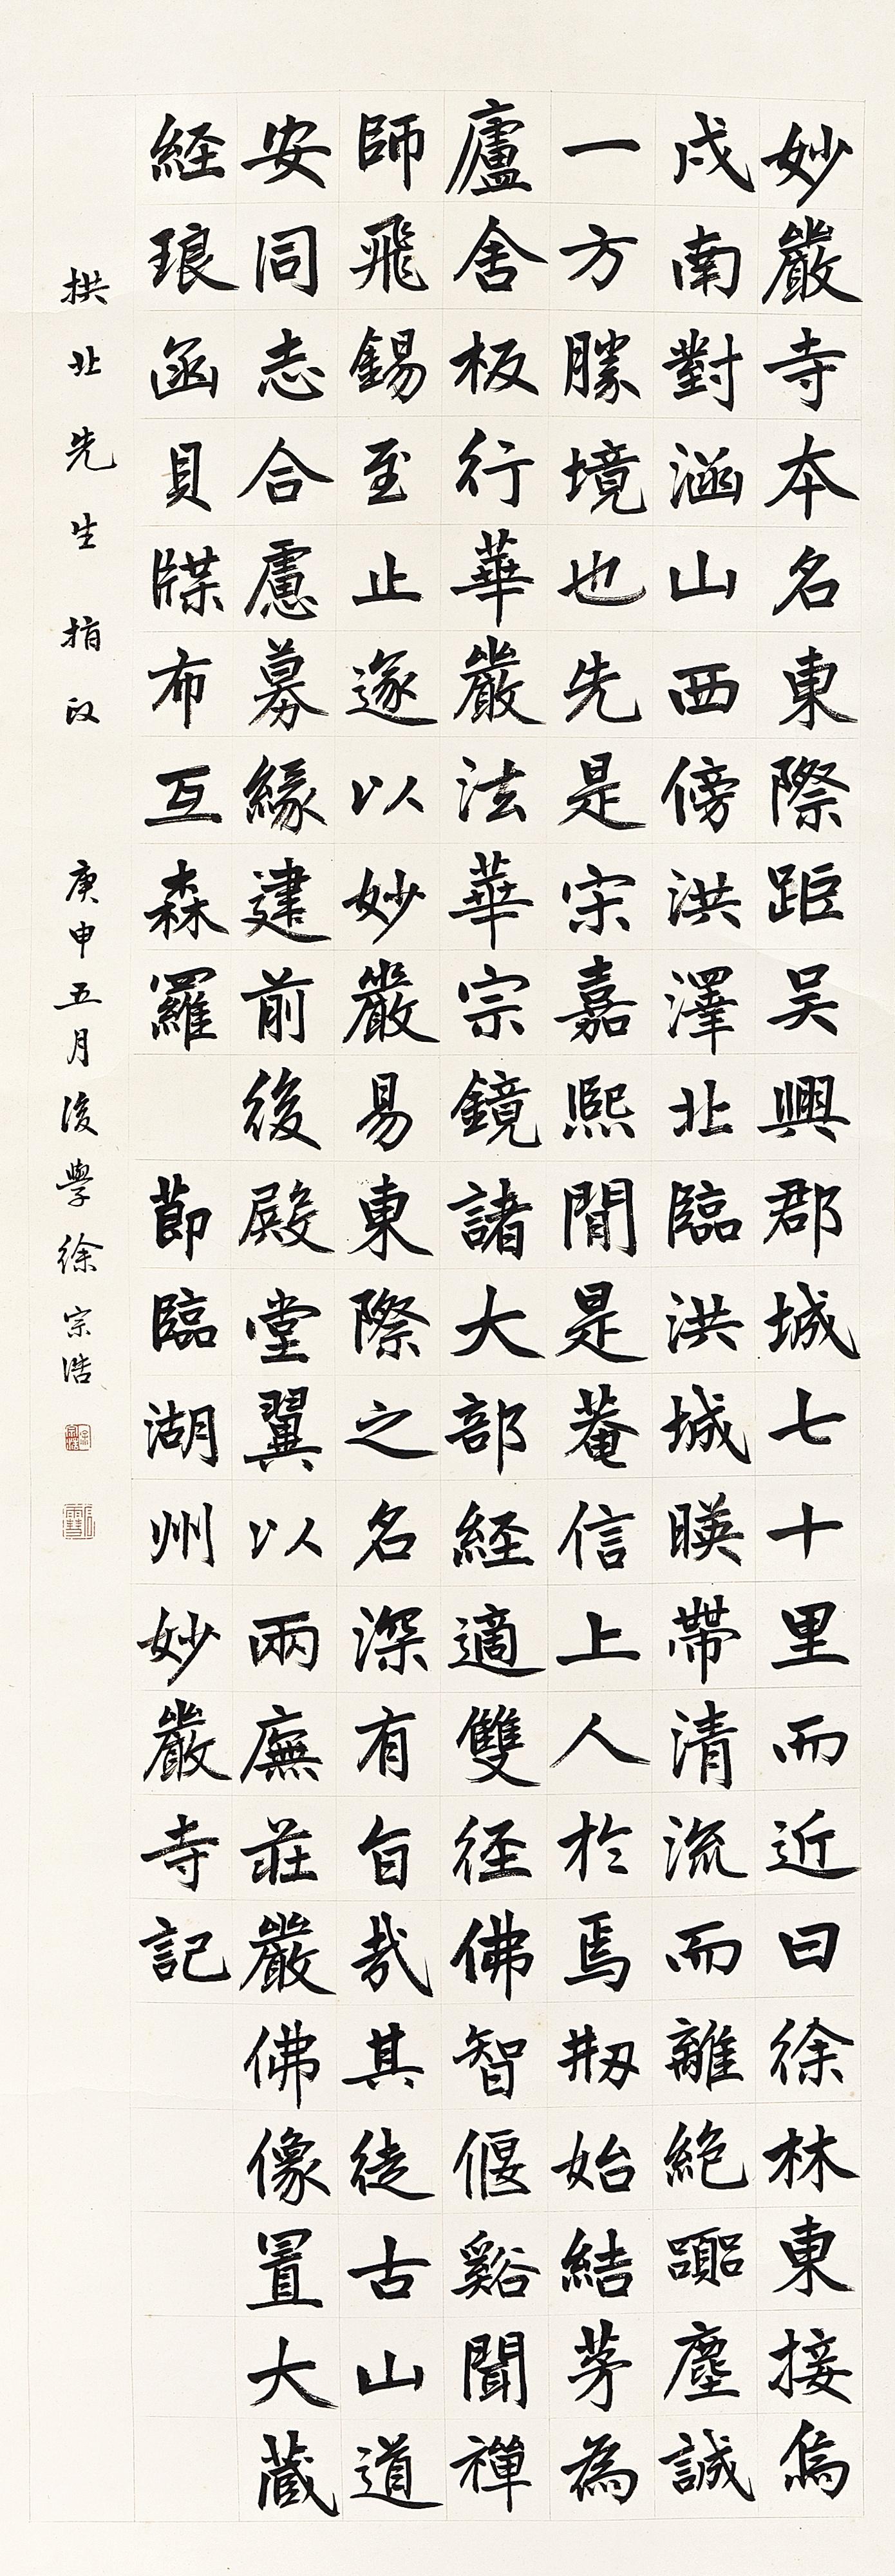 妙嚴寺本名東際距吴興郡城七十里而近曰徐林東接烏
戍南對涵山西傍洪澤北臨洪城暎帶清流而離絶囂塵誠
一方勝境也先是宋嘉熈間是菴信上人於焉剏始結茅為
廬舍板行華嚴法華宗鏡諸大部経適雙徑佛智偃谿聞禪
師飛錫至止遂以妙嚴易東際之名深有旨哉其徒古山道
安同志合慮募緣建前後殿堂翼以兩廡莊嚴佛像置大藏
経琅函貝牒布互森羅 節臨湖州妙嚴寺記
拱北先生指政 庚申五月後學徐宗浩